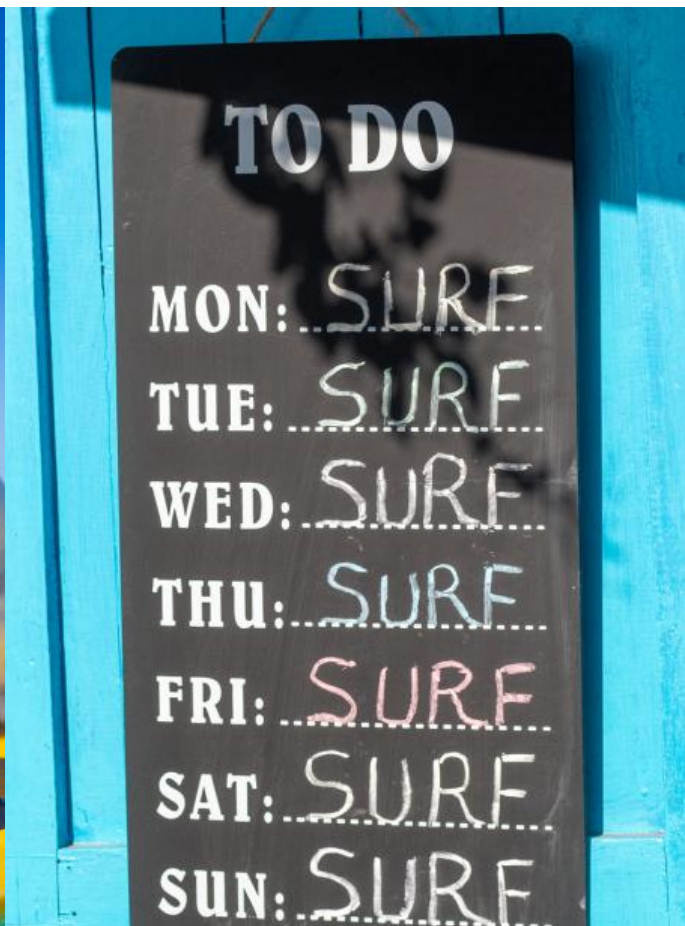 TO DO
MON: SURF
TUE: SURF
WED: SURF
THU: SURF
FRI: SURF
SAT: SURF
SUN: SURF